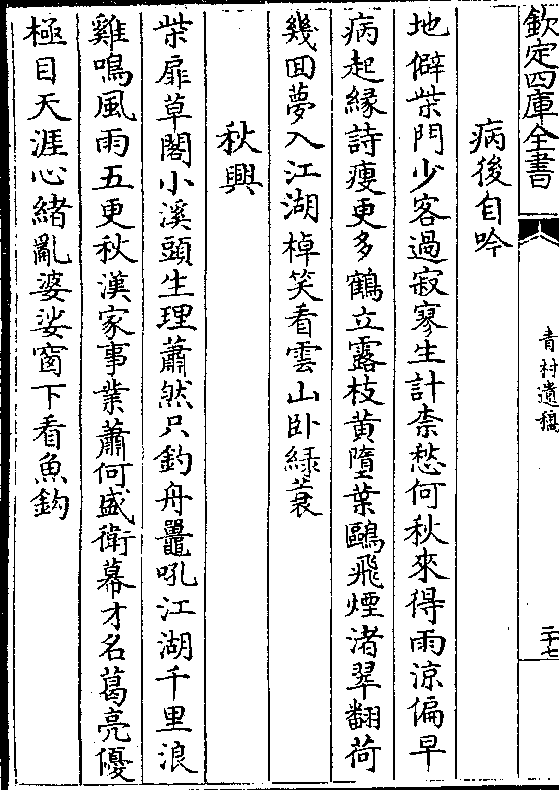 欽定四庫全書
青村遺稿
二十七
病後自吟
地僻柴門少客過寂寥生計柰愁何秋來得雨涼偏早
病起緣詩瘦更多鶴立露枝黃墮葉鷗飛煙渚翠翻荷
幾回夢入江湖棹笑看雲山卧綠蓑
秋興
柴扉草閣小溪頭生理蕭然只釣舟鼉吼江湖千里浪
雞鳴風雨五更秋漢家事業蕭何盛衛幕才名葛亮優
極目天涯心緒亂婆娑窗下看魚鈎